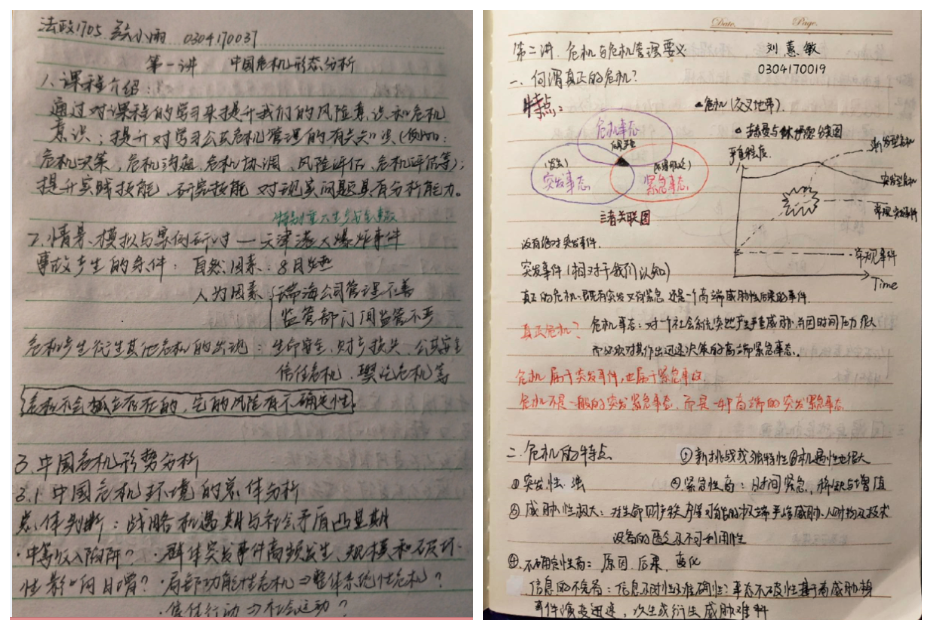 法政1705 0304170037
第一讲 中国危机形态分析
1.课程介绍:
通过对课程的学习来提升我们的风险意识和危机
意识;提升对学习公共危机管理的相关知识(例如:
危机决策,危机沟通,危机协调、风险评估、危机评估等);
提升实践技能、研究技能,对现实问题具有分析能力。
2.情景模拟与案例研讨—天津港大爆炸事件
事故产生的条件: 自然因素:8月炎热
人为因素 瑞海公司管理不善
监管部门间监管不严
危机产生衍生其他危机的出现:生命安全、财产损失、公共安全
信任危机、 危机等
危机不会孤立存在的,它的风险有不确定性
3.中国危机形势分析
3.1 中国危机环境的总体分析
总体判断:战略机遇期与社会矛盾凸显期
·中等收入陷阱? ·群体突发事件高频发生、规模和破坏
性影响日增? ·局部功能性危机⇒整体系统性危机?
·信任行动⇒社会运动?
Date. Page.
第二讲.危机与危机管理要义 刘惠敏
0304170019
一、何谓真正的危机?
特点: 危机(交叉地带).
危机事态
突发事态
紧急事态
三者关联图
Time
没有绝对突发事件.
突发事件(相对于我们认知)
真正的危机:既有突发又有紧急,还是一个高端威胁性后果的事件.
真正危机? 危机事态:对一个社会系统实地产生严重威胁,并因时间压力很大
而必须对其作出迅速决策的高端紧急事态.
危机属于突发事件,也属于紧急事态
危机不是一般的突发紧急事态,而是一种高端的突发紧急事态
二、危机的特点 机遇性也很大
①突发性:强 ②紧急性高:时间紧急,
③威胁性极大:对生命财产秩序等可能的极端严重威胁,
设备的匮乏及不可利用性
④不确定性高:原因、后果、演化
信息的不完备:信息及时性及准确性:
事件演变迅速,次生或衍生威胁难料